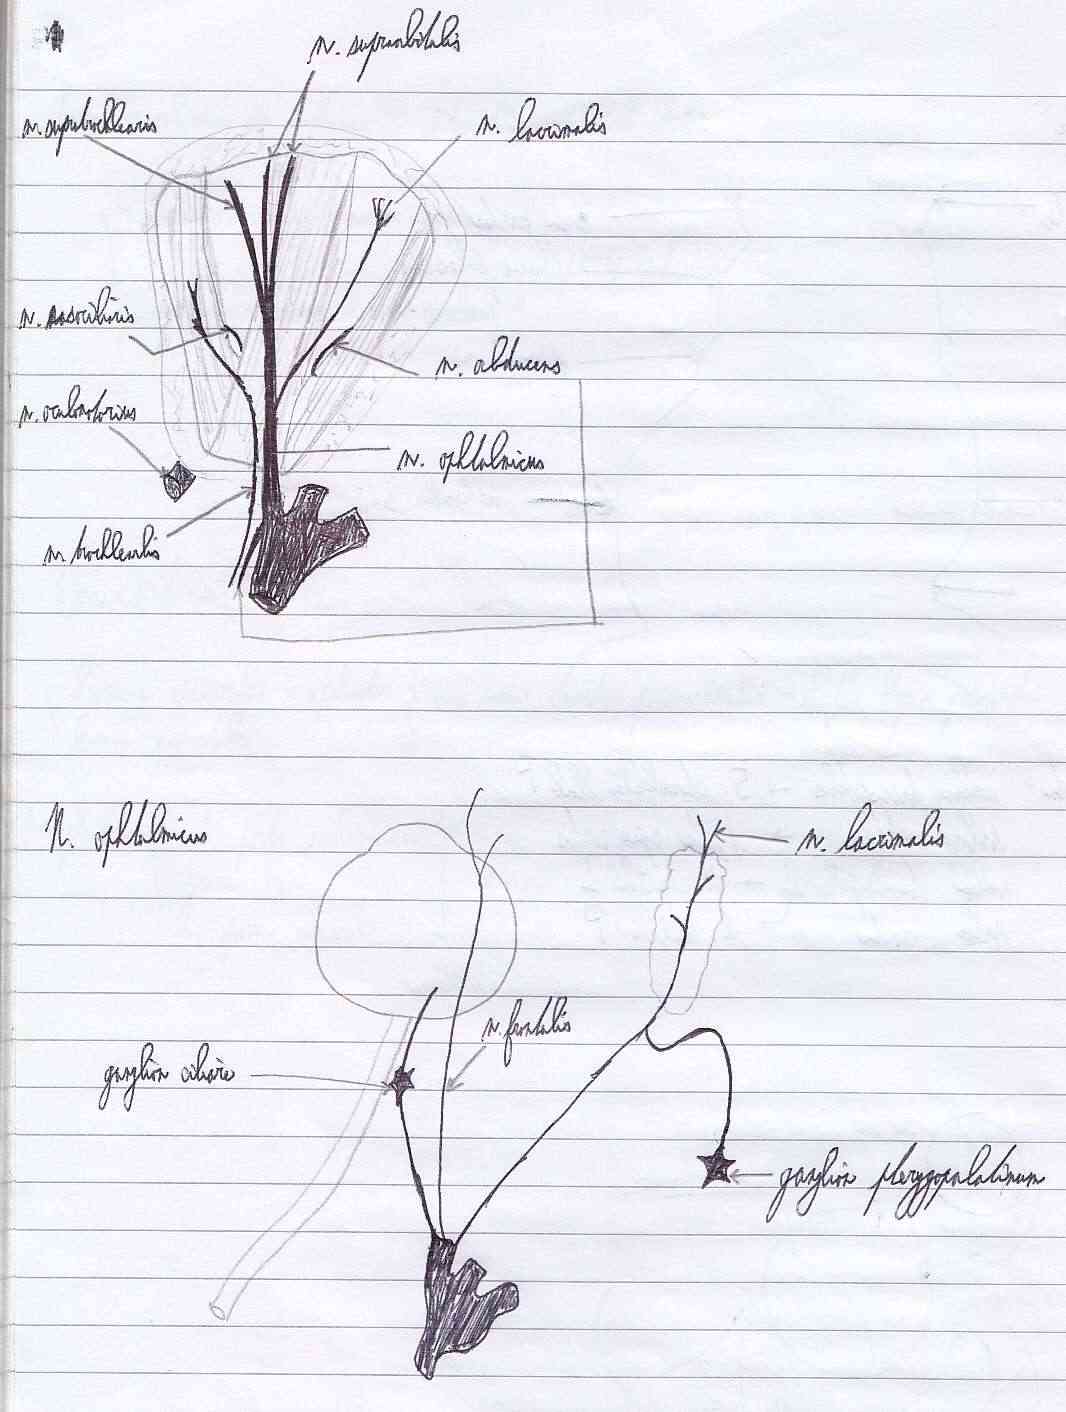 n. supraorbitalis
n. supratrochlearis
n. lacrimalis
n. nasociliaris
n. abducens
n. oculomotorius
n. ophtalmicus
n. trochlearis
N. ophtalmicus
n. lacrimalis
n. frontalis
ganglion ciliare
ganglion pterygopalatinum